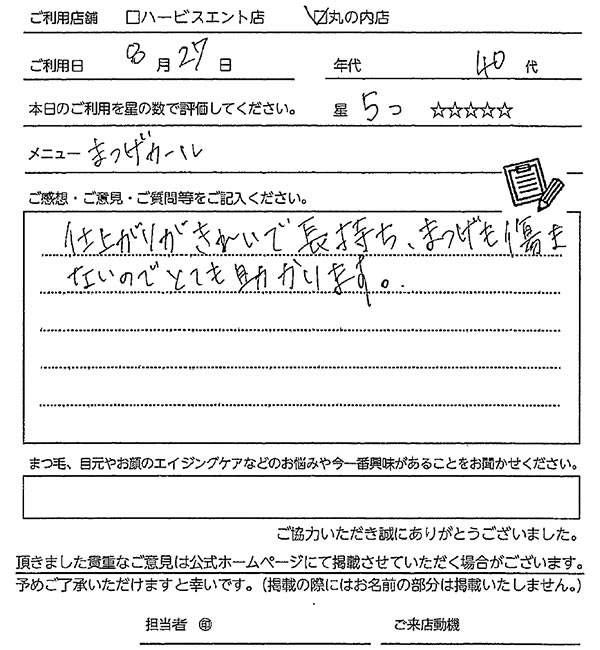 ご利用店舗 □ハービスエント店 ☑丸の内店
ご利用日 8月27日 年代 40代
本日のご利用を星の数で評価してください。 星 5つ ☆☆☆☆☆
メニュー まつげカール
ご感想・ご意見・ご質問等をご記入ください。
仕上がりがきれいで長持ち、まつげも傷ま
ないのでとても助かります。
まつ毛、目元やお顔のエイジングケアなどのお悩みや今一番興味があることをお聞かせください。
ご協力いただき誠にありがとうございました。
頂きました貴重なご意見は公式ホームページにて掲載させていただく場合がございます。
予めご了承いただけますと幸いです。（掲載の際にはお名前の部分は掲載いたしません。）
担当者 ㊞ ご来店動機